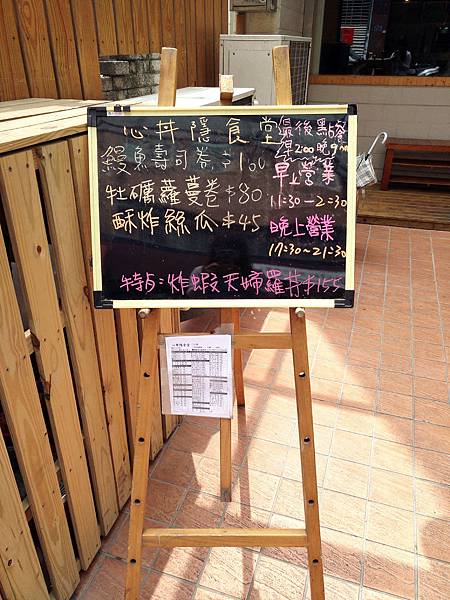 心丼隱食堂
鰻魚壽司卷$100
牡蠣蘿蔓卷$80
酥炸絲瓜$45
最後點餐
早2:00晚9:00
早上營業
11:30-2:30
晚上營業
17:30~21:30
特餐:炸蝦天婦羅丼$155